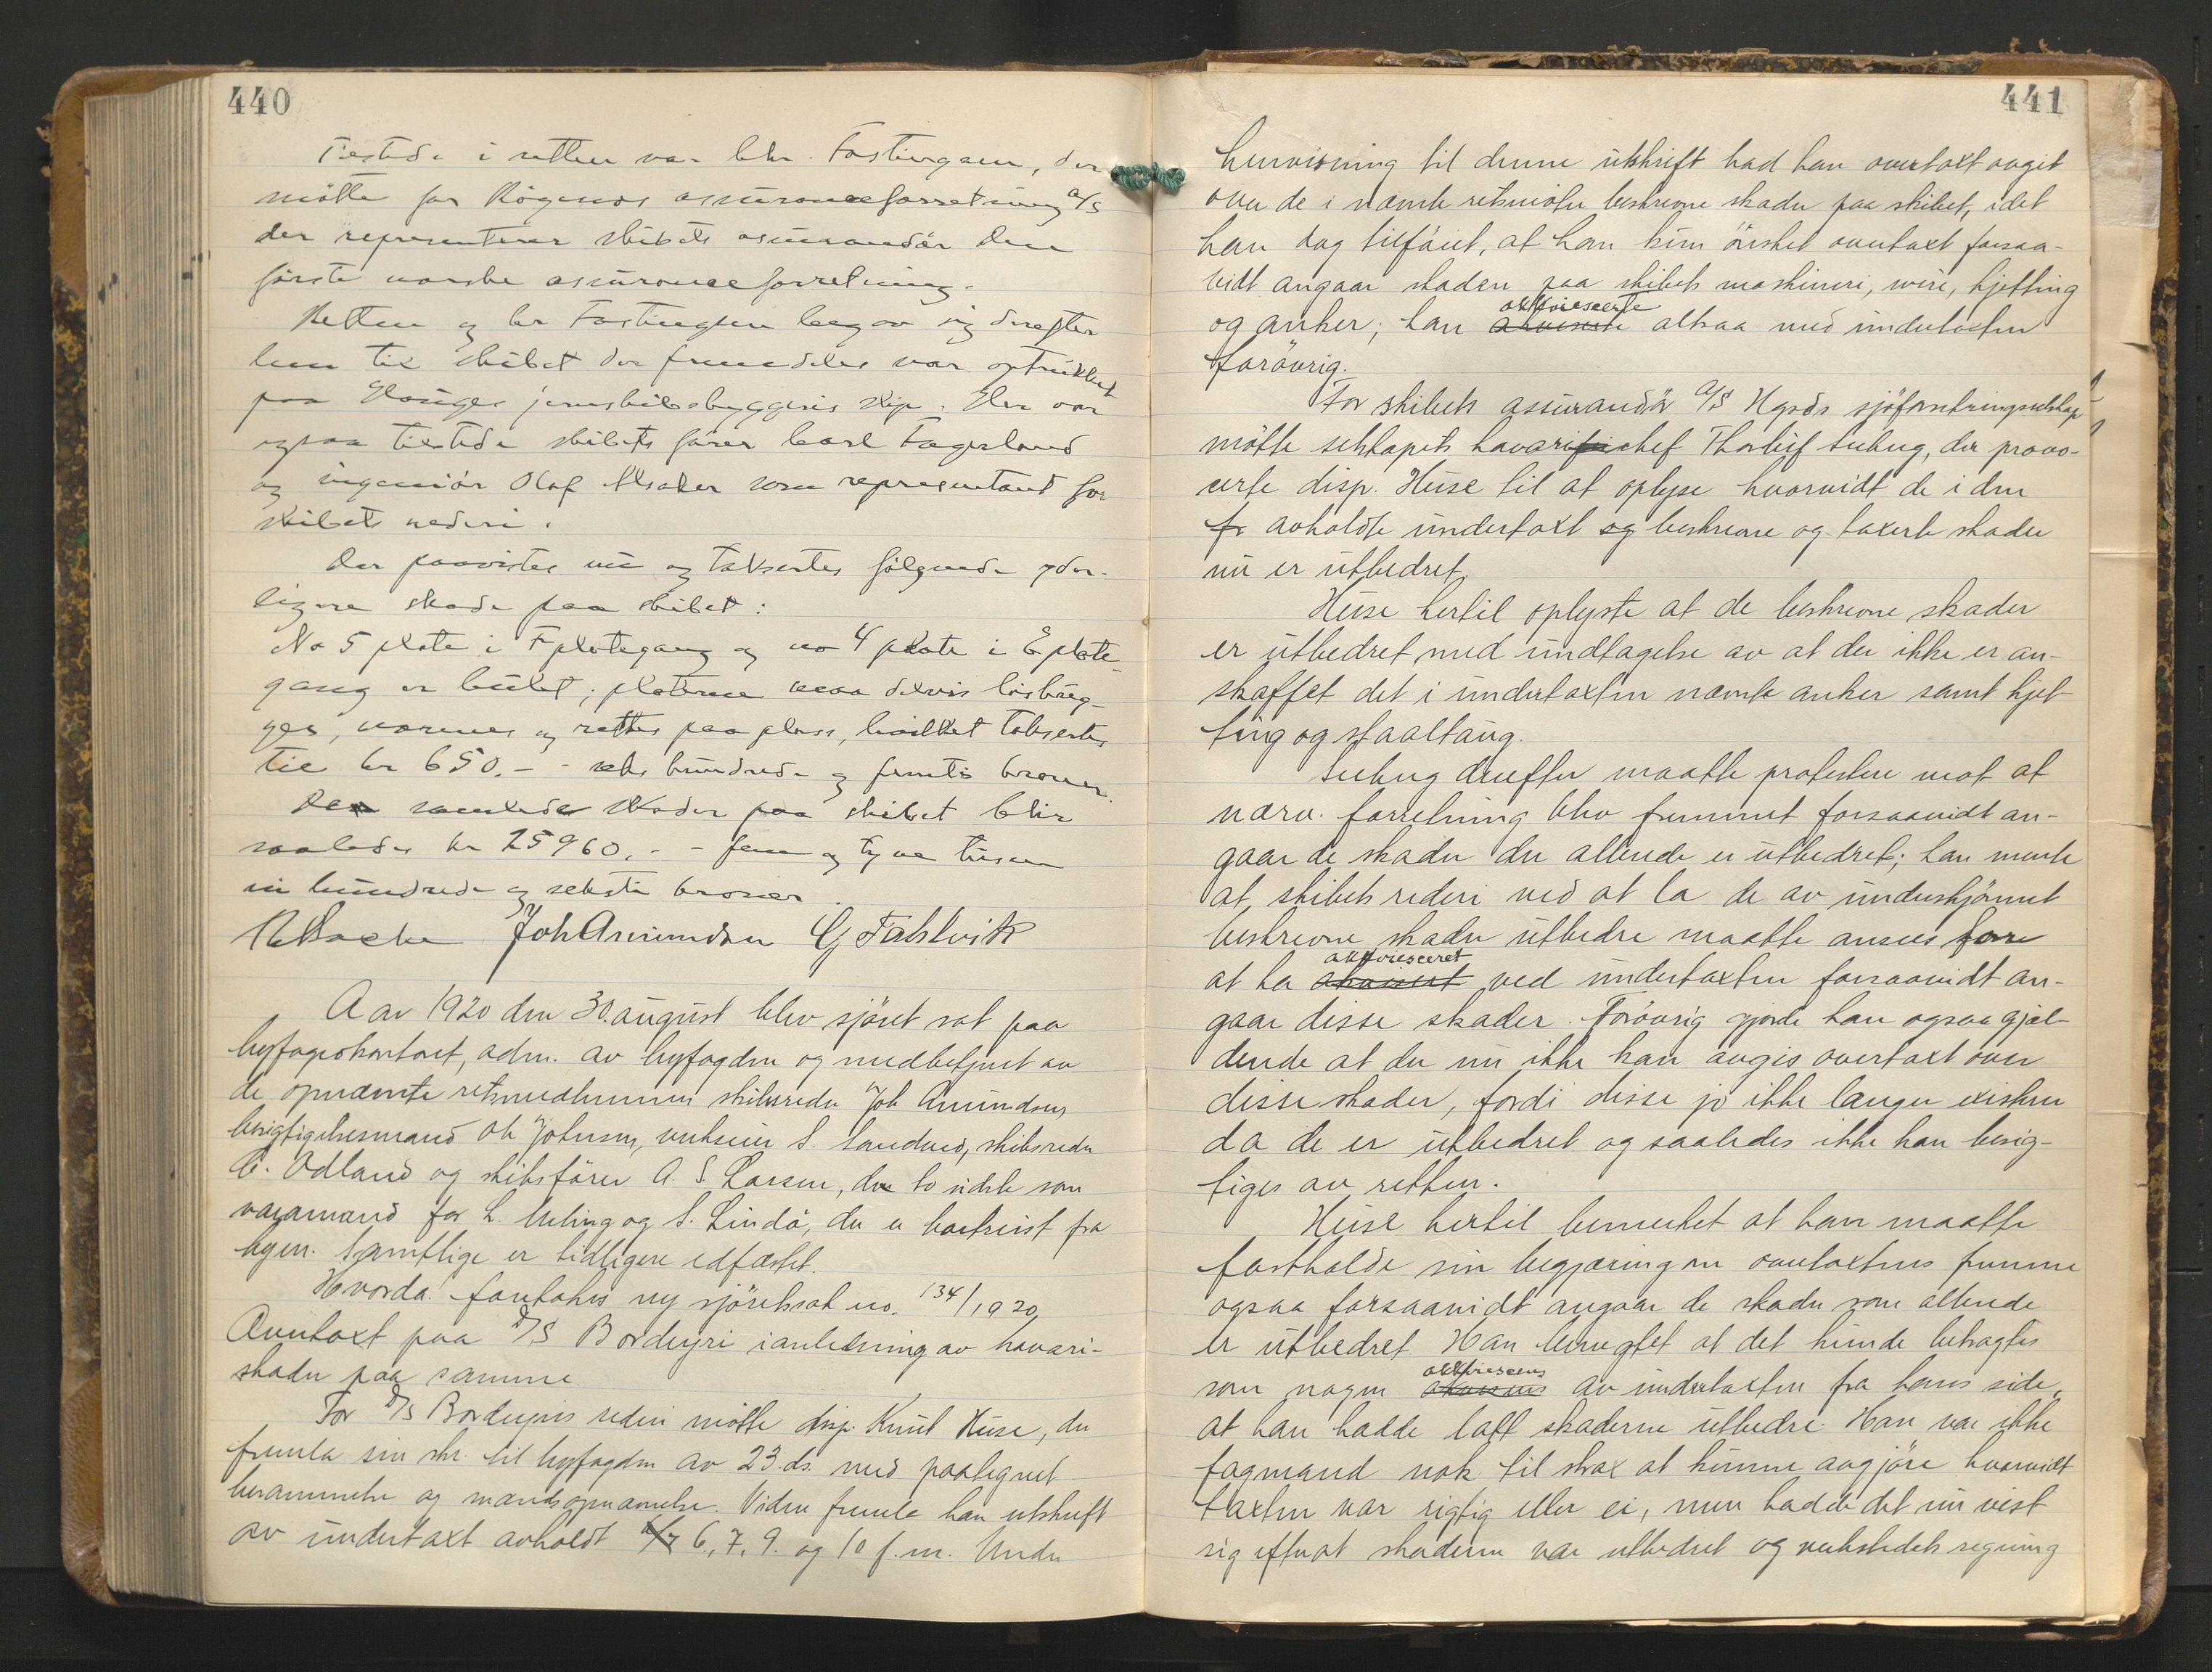 440
Tilstede i retten var hr. Fastingsen, der
mötte for Rögenes assuranceforretning A/S
der representerer skibets assurandör den
förste norske assuranceforretning.
Retten og hr Fastingsen begav sig derefter
hen til skibet der fremdeles var optrukket
paa Hauges jernskibsbyggeris slip. Her var
ogsaa tilstede skibets förer Carl Fagerland
og ingeniör Olaf Alsaker som representant for
skibets rederi.
Der paavistes nu og taksertes fölgende yder-
ligere skade paa skibet:
No 5 plate i F plategang og no 4 plate i E plate
gang er bulet; platerne maa delvis lösbryg-
ges, varmes og rettes paa plass, hvilket taksertes
til kr 650.- - seks hundrede og femti kroner.
De samlede skader paa skibet blir
saaledes kr 25960.- - fem og tyve tusen
ni hundrede og seksti kroner.
Joh Amundsen
Aar 1920 den 30. august blev sjöret sat paa
byfogdkontoret, adm. av byfogden og medbetjent av
de opnævnte retsmedlemmer skibsreder Joh Amundsen
besigtigelsesmand Ol. Johnsen, verkseier S. Sandved, skibsreder
C. Odland og skibsförer A. S. Larsen, de to sidste som
varamænd for L. Meling og S. Lindö, der er bortreist fra
byen. Samtlige er tidligere edfæstet.
Hvorda foretokes ny sjöretssak no. 134/1920,
Overtaxt paa D/S Bordeyri i anledning av havari-
skader paa samme.
For D/S Bordeyris rederi mötte disp. Knut Huse, der
fremla sin skr. til byfogden av 23. ds. med paategnet
berammelse og mandsopnævnelse. Videre fremla han utskrift
av undertaxt avholdt 6., 7., 9. og 10 f.m. Under
441
henvisning til denne utskrift bad han overtaxt avgit
over de i nævnte retsmöter beskrevne skader paa skibet, idet
han dog tilföiet, at han kun önsket overtaxt forsaa-
vidt angaar skaden paa skibets maskineri, wire, kjetting
og anker; han akkviescerte altsaa med undertaxten
forövrig.
For skibets assurandör A/S Hgsds sjöforsikringsselskap
mötte selskapets havarichef Thorleif Seeberg, der provo-
certe disp. Huse til at oplyse hvorvidt de i den
avholdte undertaxt beskrevne og taxerte skader
nu er utbedret.
Huse hertil oplyste at de beskrevne skader
er utbedret med undtagelse av at der ikke er an-
skaffet det i undertaxten nævnte anker samt kjet
ting og staaltaug.
Seeberg derefter maatte protestere mot at
nærv. forretning blev fremmet forsaavidt an-
gaar de skader der allerede er utbedret; han mente
at skibets rederi ved at la de av underskjönnet
beskrevne skader utbedre maatte ansees
at ha akkviesceret ved undertaxten forsaavidt an-
gaar disse skader. Forövrig gjorde han ogsaa gjæl-
dende at der nu ikke kan avgis overtaxt over
disse skader, fordi disse jo ikke længer existerer
da de er utbedret og saaledes ikke kan besig-
tiges av retten.
Huse hertil bemerket at han maatte
fastholde sin begjæring om overtaxtens fremme
ogsaa forsaavidt angaar de skader som allerede
er utbedret. Han benegtet at det kunde betragtes
som nogen akkviescens av undertaxten fra hans side,
at han hadde latt skaderne utbedre. Han var ikke
fagmand nok til strax at kunne avgjöre hvorvidt
taxten var rigtig eller ei, men hadde det nu vist
sig efterat skaderne var utbedret og verkstedets regning